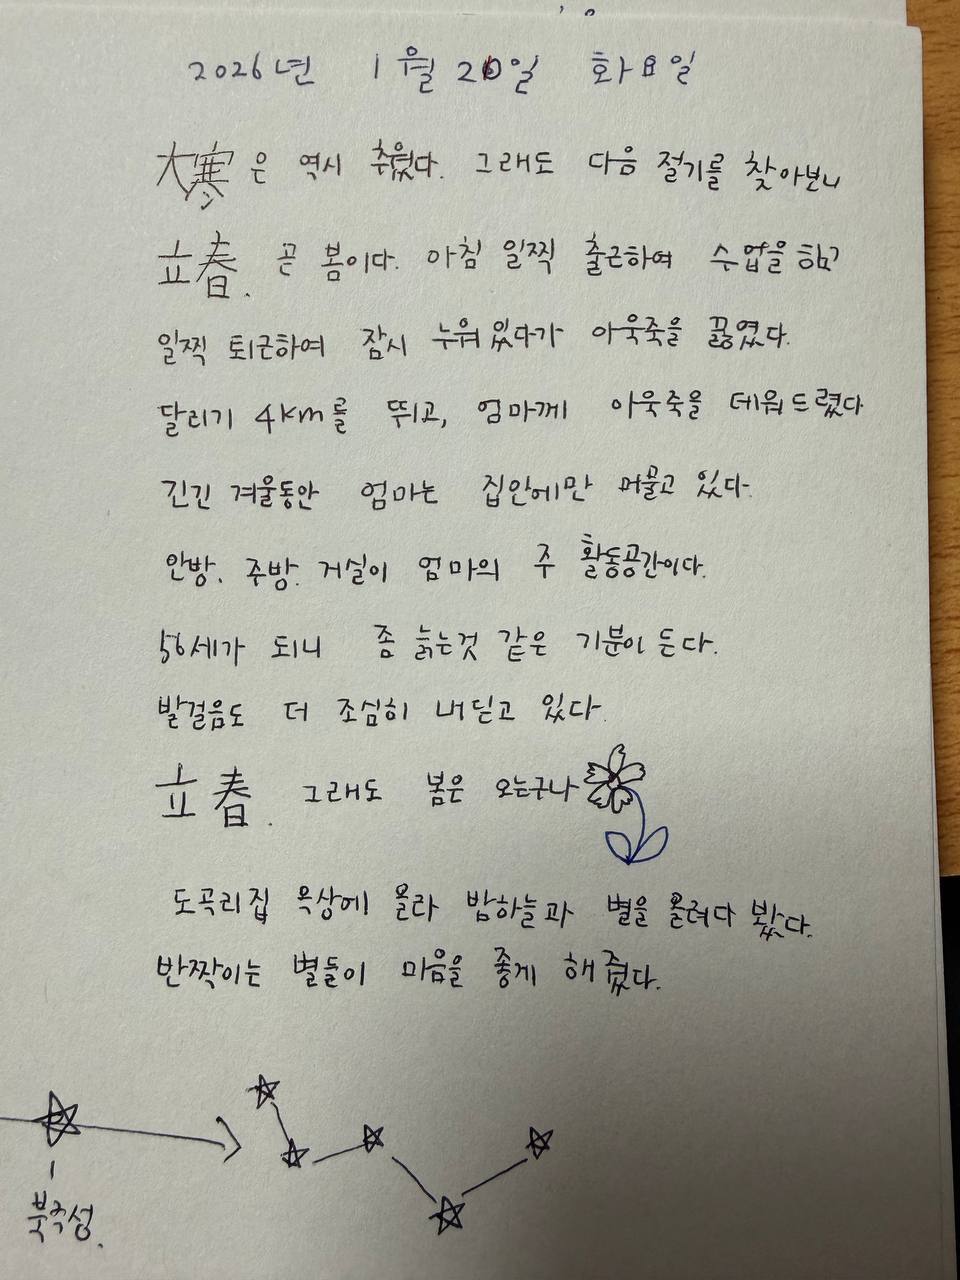 2026년 1월 20일 화요일
大寒은 역시 추웠다. 그래도 다음 절기를 찾아보니
立春. 곧 봄이다. 아침 일찍 출근하여 수업을 하고
일찍 퇴근하여 잠시 누워있다가 아욱죽을 끓였다.
달리기 4km를 뛰고, 엄마께 아욱죽을 데워드렸다
긴긴 겨울동안 엄마는 집안에만 머물고 있다.
안방. 주방. 거실이 엄마의 주 활동공간이다.
56세가 되니 좀 늙는것 같은 기분이 든다.
발걸음도 더 조심히 내딛고 있다.
立春. 그래도 봄은 오는구나
도곡리집 옥상에 올라 밤하늘과 별을 올려다 봤다.
반짝이는 별들이 마음을 좋게 해줬다.
북극성.